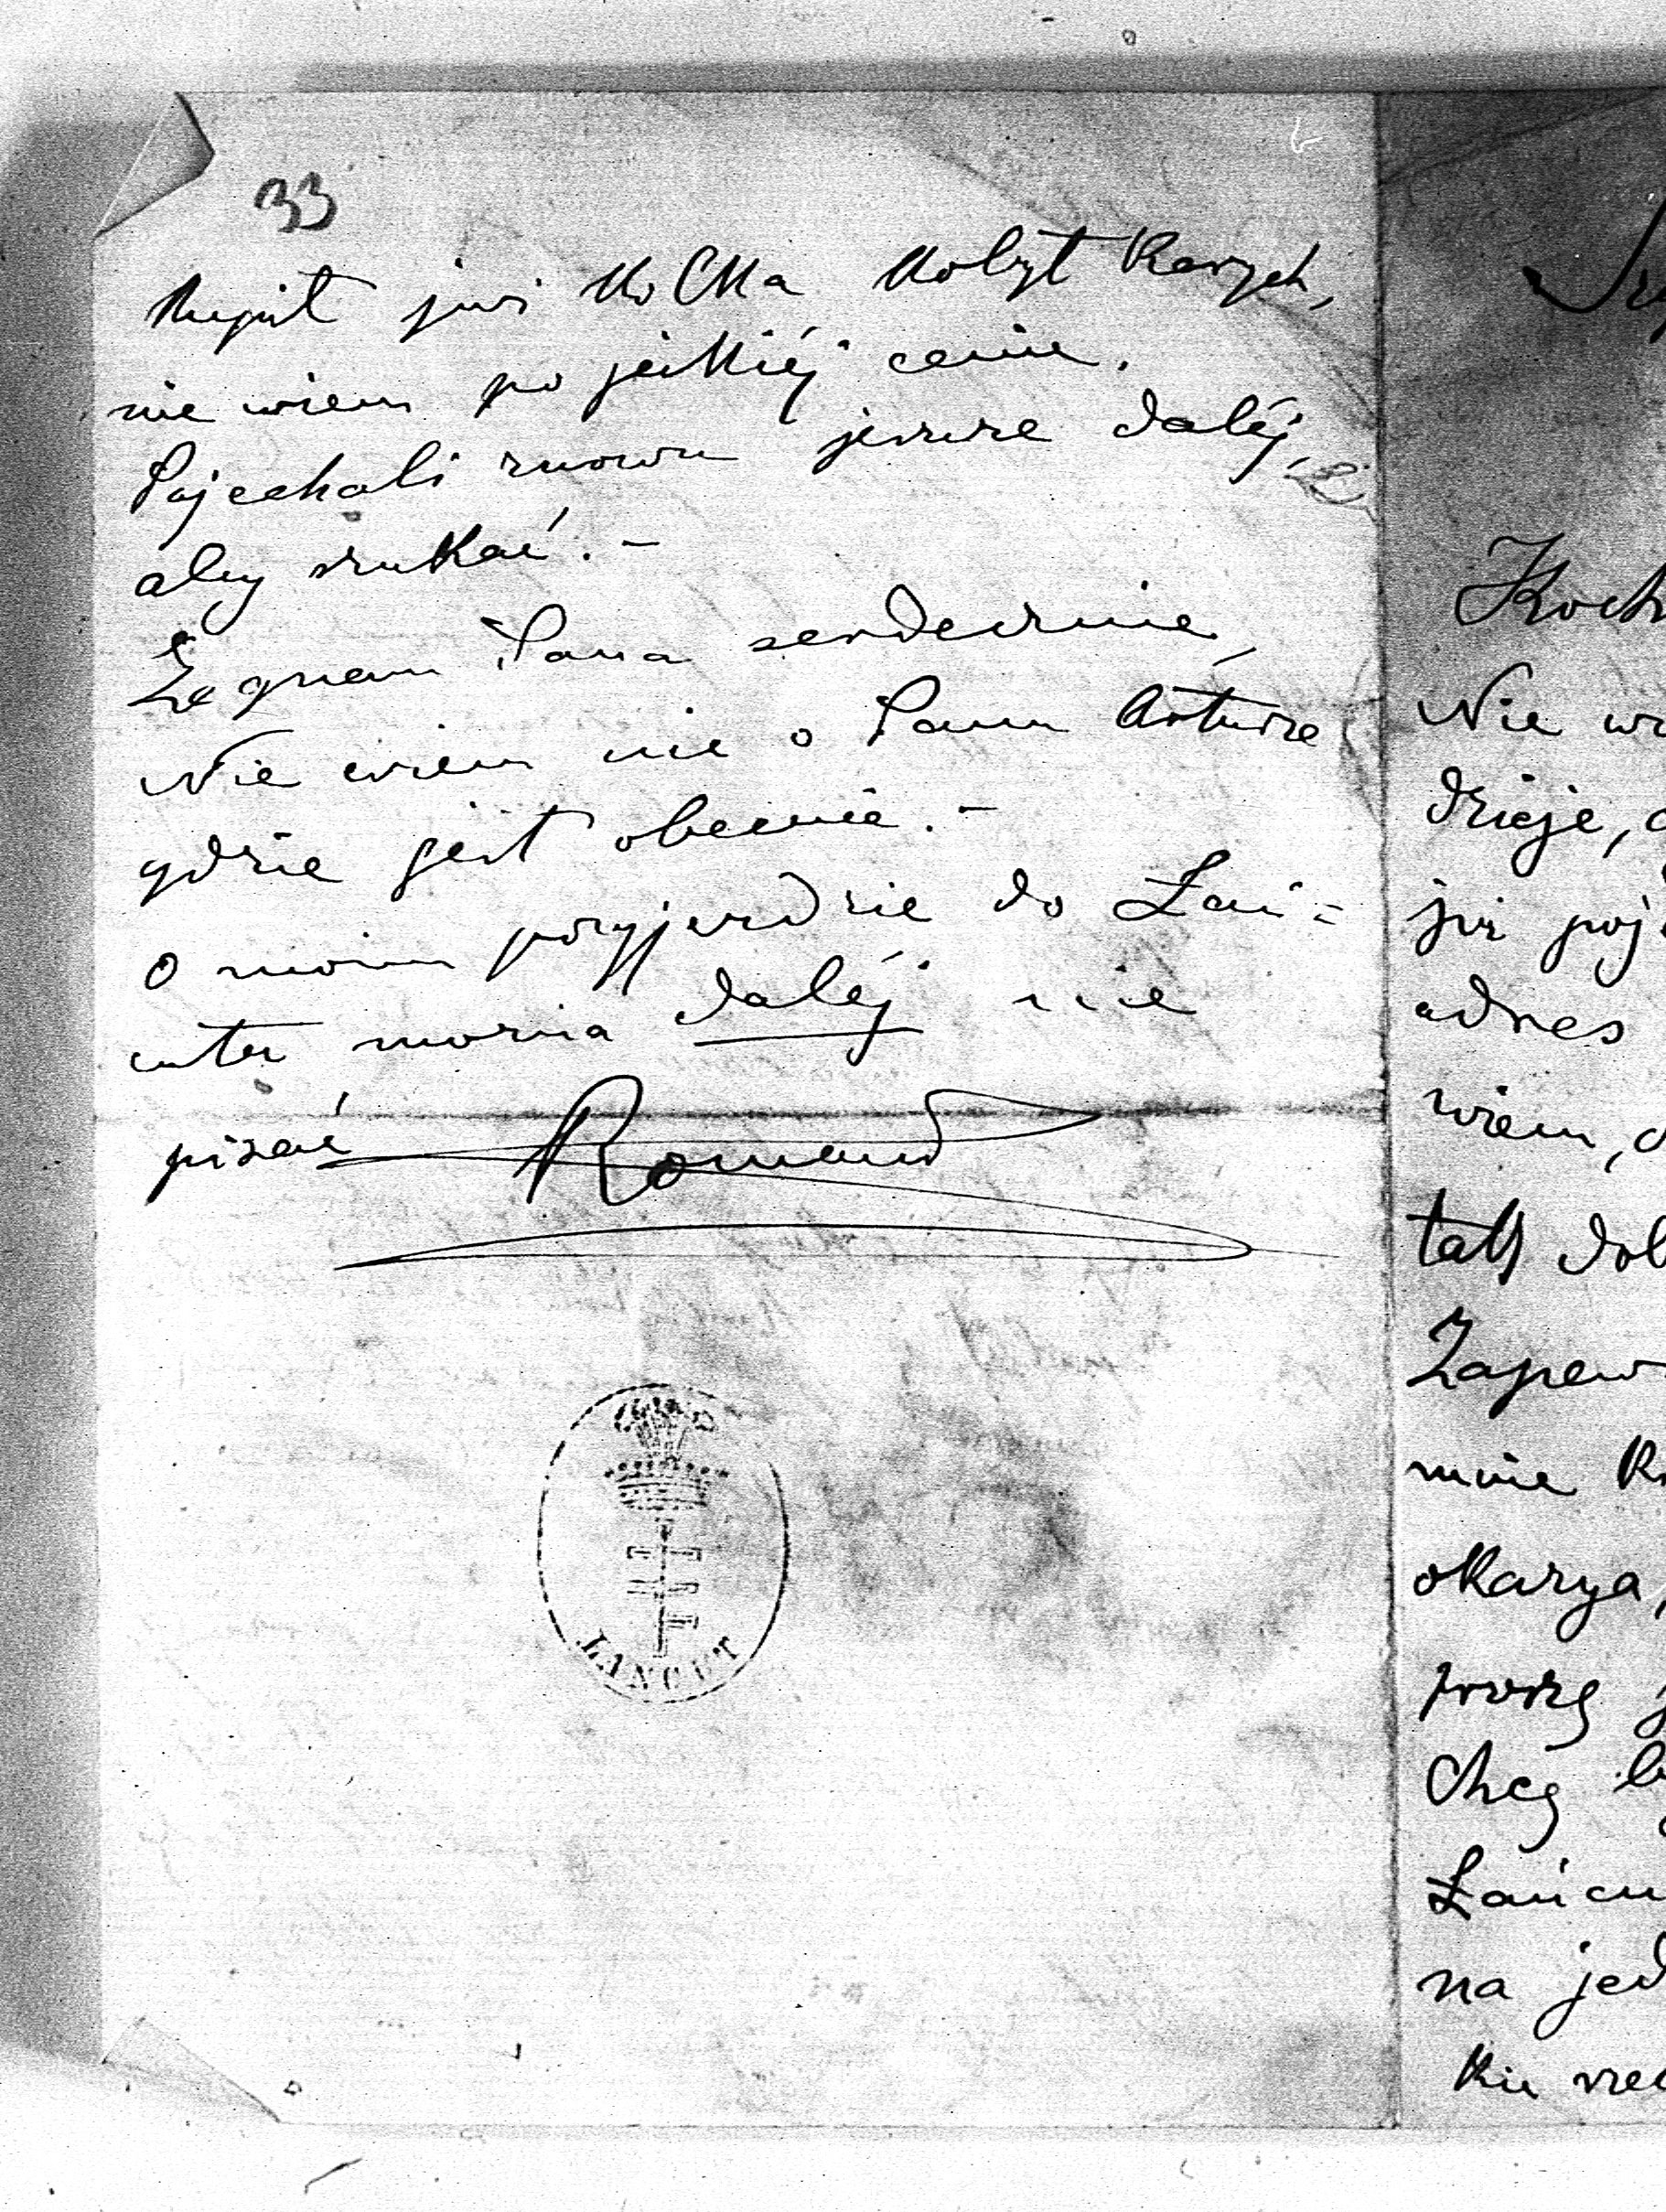 33
Kupił już kilka kobył karych,
nie wiem po jakiéj cenie.
Pojechali znowu jeszcze daléj,
aby szukać. -
Żegnam Pana serdecznie,
Nie wiem nic o Panu Arturze
gdzie jest obecnie. -
O moim przyjeździe do Łań=
cuta można daléj nie
pisać Roman
LANCUT
Koch
Nie w
dzieje,
już poj
adres
wiem,
tak dob
Zapew
mnie
okazya,
proszę
Chcę
Łańcu
na jed
kie